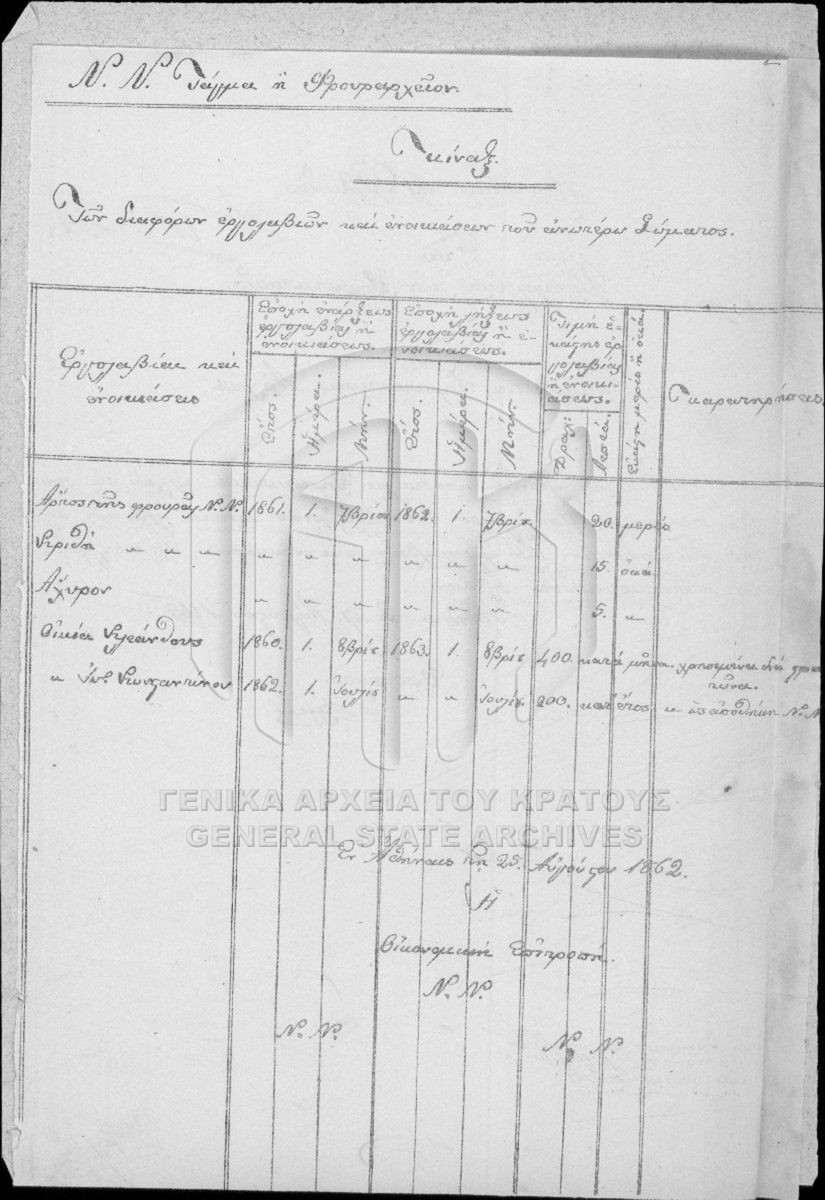 Ν. Ν. Τάγμα ἢ Φρουραρχεῖον.
Πίναξ.
Τῶν διαφόρων ἐργολαβιῶν καὶ ἐνοικιάσεων τοῦ ἀνωτέρω Σώματος.
Ἐργολαβίαι καὶ ἐνοικιάσεις
Ἐποχὴ ἐνάρξεως ἐργολαβίας ἢ ἐνοικιάσεως.
Ἔτος. Ἡμέρα. Μήν.
Ἐποχὴ λήξεως ἐργολαβίας ἢ ἐνοικιάσεως.
Ἔτος. Ἡμέρα. Μήν.
Τιμὴ ἑκάστης ἐργολαβίας ἢ ἐνοικιάσεως.
Δραχ: Λεπτά.
Ἑκάστη μερὶς ἢ ὀκά.
Παρατηρήσεις
Ἄρτος τῆς φρουρᾶς Ν. Ν. 1861. 1. 7βρίου 1862. 1. 7βρίου. 20. μερίς
Κριθὴ " " " " " " " " " 15. ὀκά
Ἄχυρον " " " " " " 5. "
Οἰκία Κλεάνθους 1860. 1. 8βρίου 1863. 1. 8βρίου 400. κατὰ μῆνα. χρησιμεύει διὰ στρατῶνα.
" Ἰω. Κωνσταντίνου 1862. 1. Ἰουλίου " " Ἰουλίου. 200. κατ' ἔτος " ὡς ἀποθήκη Ν. Ν
ΓΕΝΙΚΑ ΑΡΧΕΙΑ ΤΟΥ ΚΡΑΤΟΥΣ
GENERAL STATE ARCHIVES
Ἐν Ἀθήναις τῇ 25. Αὐγούστου 1862.
Ἡ
Οἰκονομικὴ Ἐπιτροπή.
Ν. Ν.
Ν. Ν.
Ν. Ν.